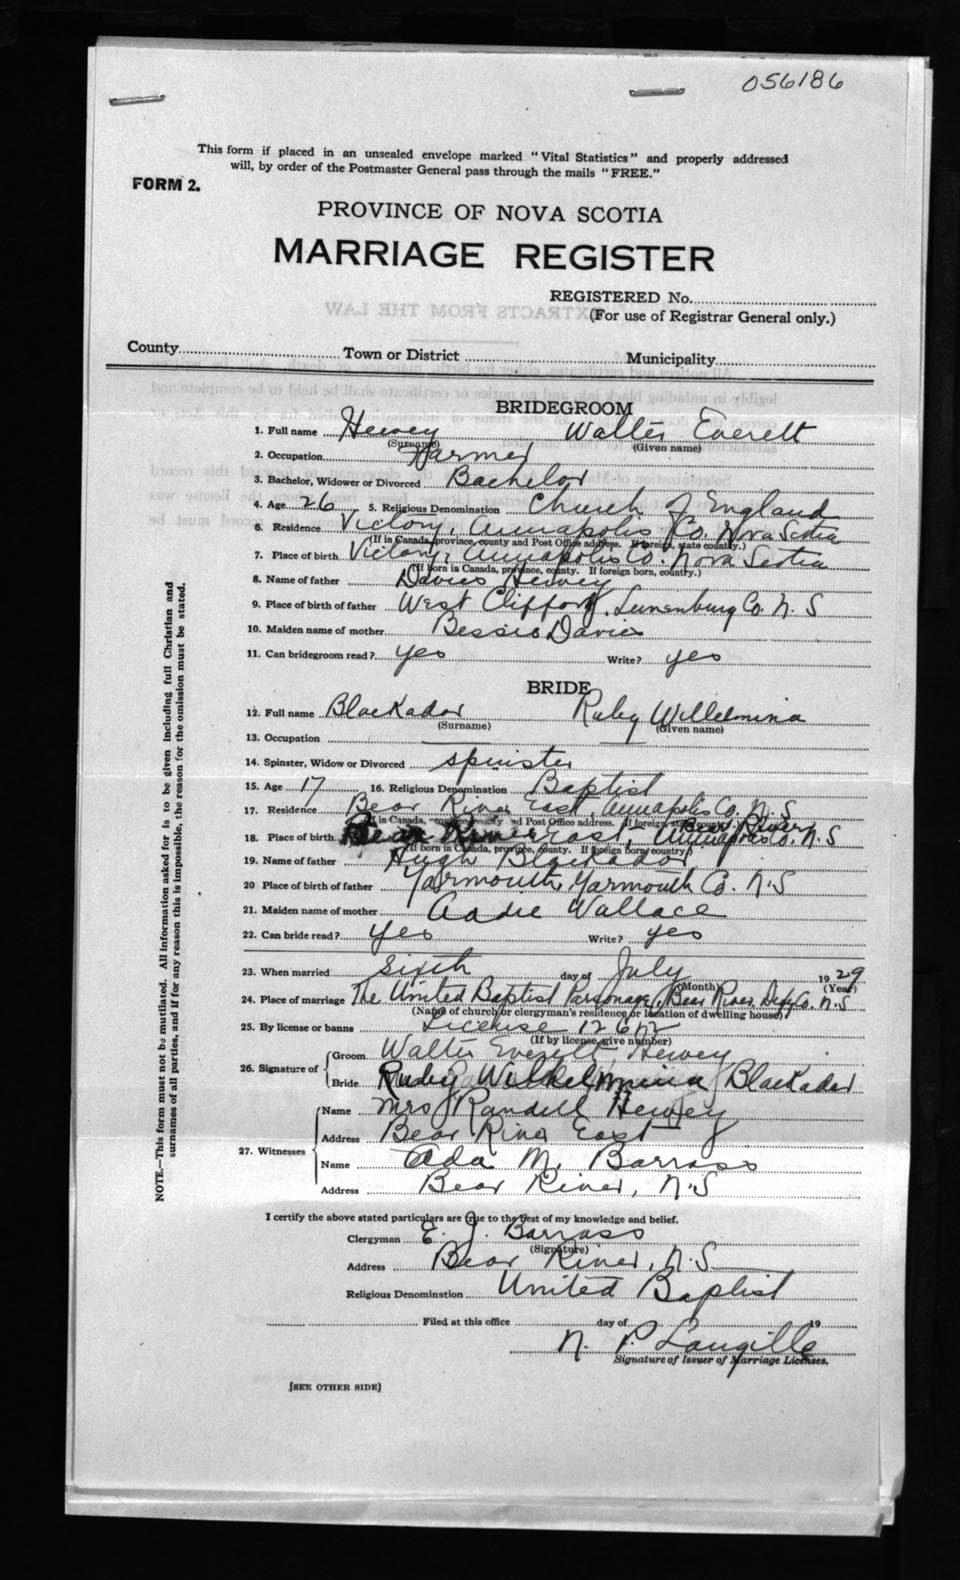 056186
This form if placed in an unsealed envelope marked "Vital Statistics" and properly addressed
will, by order of the Postmaster General pass through the mails "FREE."
FORM 2.
PROVINCE OF NOVA SCOTIA
MARRIAGE REGISTER
REGISTERED No.
(For use of Registrar General only.)
EXTRACTS FROM THE LAW
County Town or District Municipality
BRIDEGROOM
1. Full name Hervey Walter Everett
(Surname) (Given name)
2. Occupation Farmer
3. Bachelor, Widower or Divorced Bachelor
4. Age 26 5. Religious Denomination Church of England
6. Residence Victory, Annapolis Co. Nova Scotia
(If in Canada, province, county and Post Office address. If foreign, state country.)
7. Place of birth Victory, Annapolis Co. Nova Scotia
(If born in Canada, province, county. If foreign born, country.)
8. Name of father Davies Hervey
9. Place of birth of father West Clifford, Lunenburg Co. N. S
10. Maiden name of mother Bessie Davies
11. Can bridegroom read? yes Write? yes
BRIDE
12. Full name Blackador Ruby Willelmina
(Surname) (Given name)
13. Occupation
14. Spinster, Widow or Divorced spinster
15. Age 17 16. Religious Denomination Baptist
17. Residence Bear River East, Annapolis Co, N. S
(If in Canada, province, county and Post Office address. If foreign, state country.)
Bear River
18. Place of birth Bear River East, Annapolis Co. N. S
(If born in Canada, province, county. If foreign born, country.)
19. Name of father Hugh Blackador
20 Place of birth of father Yarmouth, Yarmouth Co. N. S
21. Maiden name of mother Addie Wallace
22. Can bride read? yes Write? yes
23. When married Sixth day of July 1929
(Month) (Year)
24. Place of marriage The United Baptist Parsonage, Bear River, Digby Co. N. S
(Name of church or clergyman's residence or location of dwelling house)
25. By license or banns License 12672
(If by license, give number)
26. Signature of Groom Walter Everett Hervey
Bride Ruby Wilhelmina Blackador
27. Witnesses
Name Mrs Randell Hervey
Address Bear River East
Name Ada M. Barrass
Address Bear River, N. S
I certify the above stated particulars are true to the best of my knowledge and belief.
Clergyman E. J. Barrass
(Signature)
Address Bear River, N. S
Religious Denomination United Baptist
Filed at this office day of 19
N. P. Langille
Signature of Issuer of Marriage Licenses.
[SEE OTHER SIDE]
NOTE.—This form must not be mutilated. All information asked for is to be given including full Christian and
surnames of all parties, and if for any reason this is impossible, the reason for the omission must be stated.